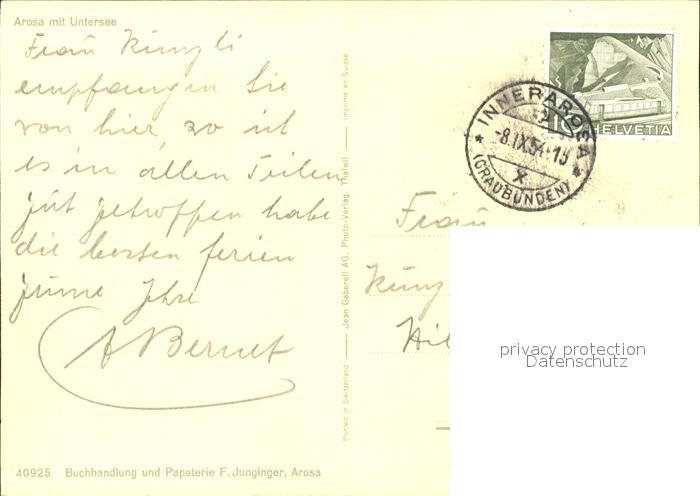 Arosa mit Untersee
Frau Künzli
empfangen Sie
von hier wo ich
es in allen Teilen
gut getroffen habe
die besten ferien
Ihre
A Bernet
40925 Buchhandlung und Papeterie F. Junginger, Arosa
Printed in Switzerland Jean Gaberell AG, Photo-Verlag, Thalwil Imprimé en Suisse
INNERAROSA
-8.IX.54-15
X
(GRAUBÜNDEN)
10
HELVETIA
Frau
Künz
privacy protection
Datenschutz